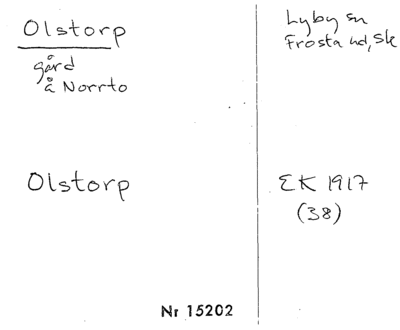 Olstorp
gård
å Norrto
Lyby sn
Frosta hd, Sk
Olstorp
EK 1917
(38)
Nr 15202